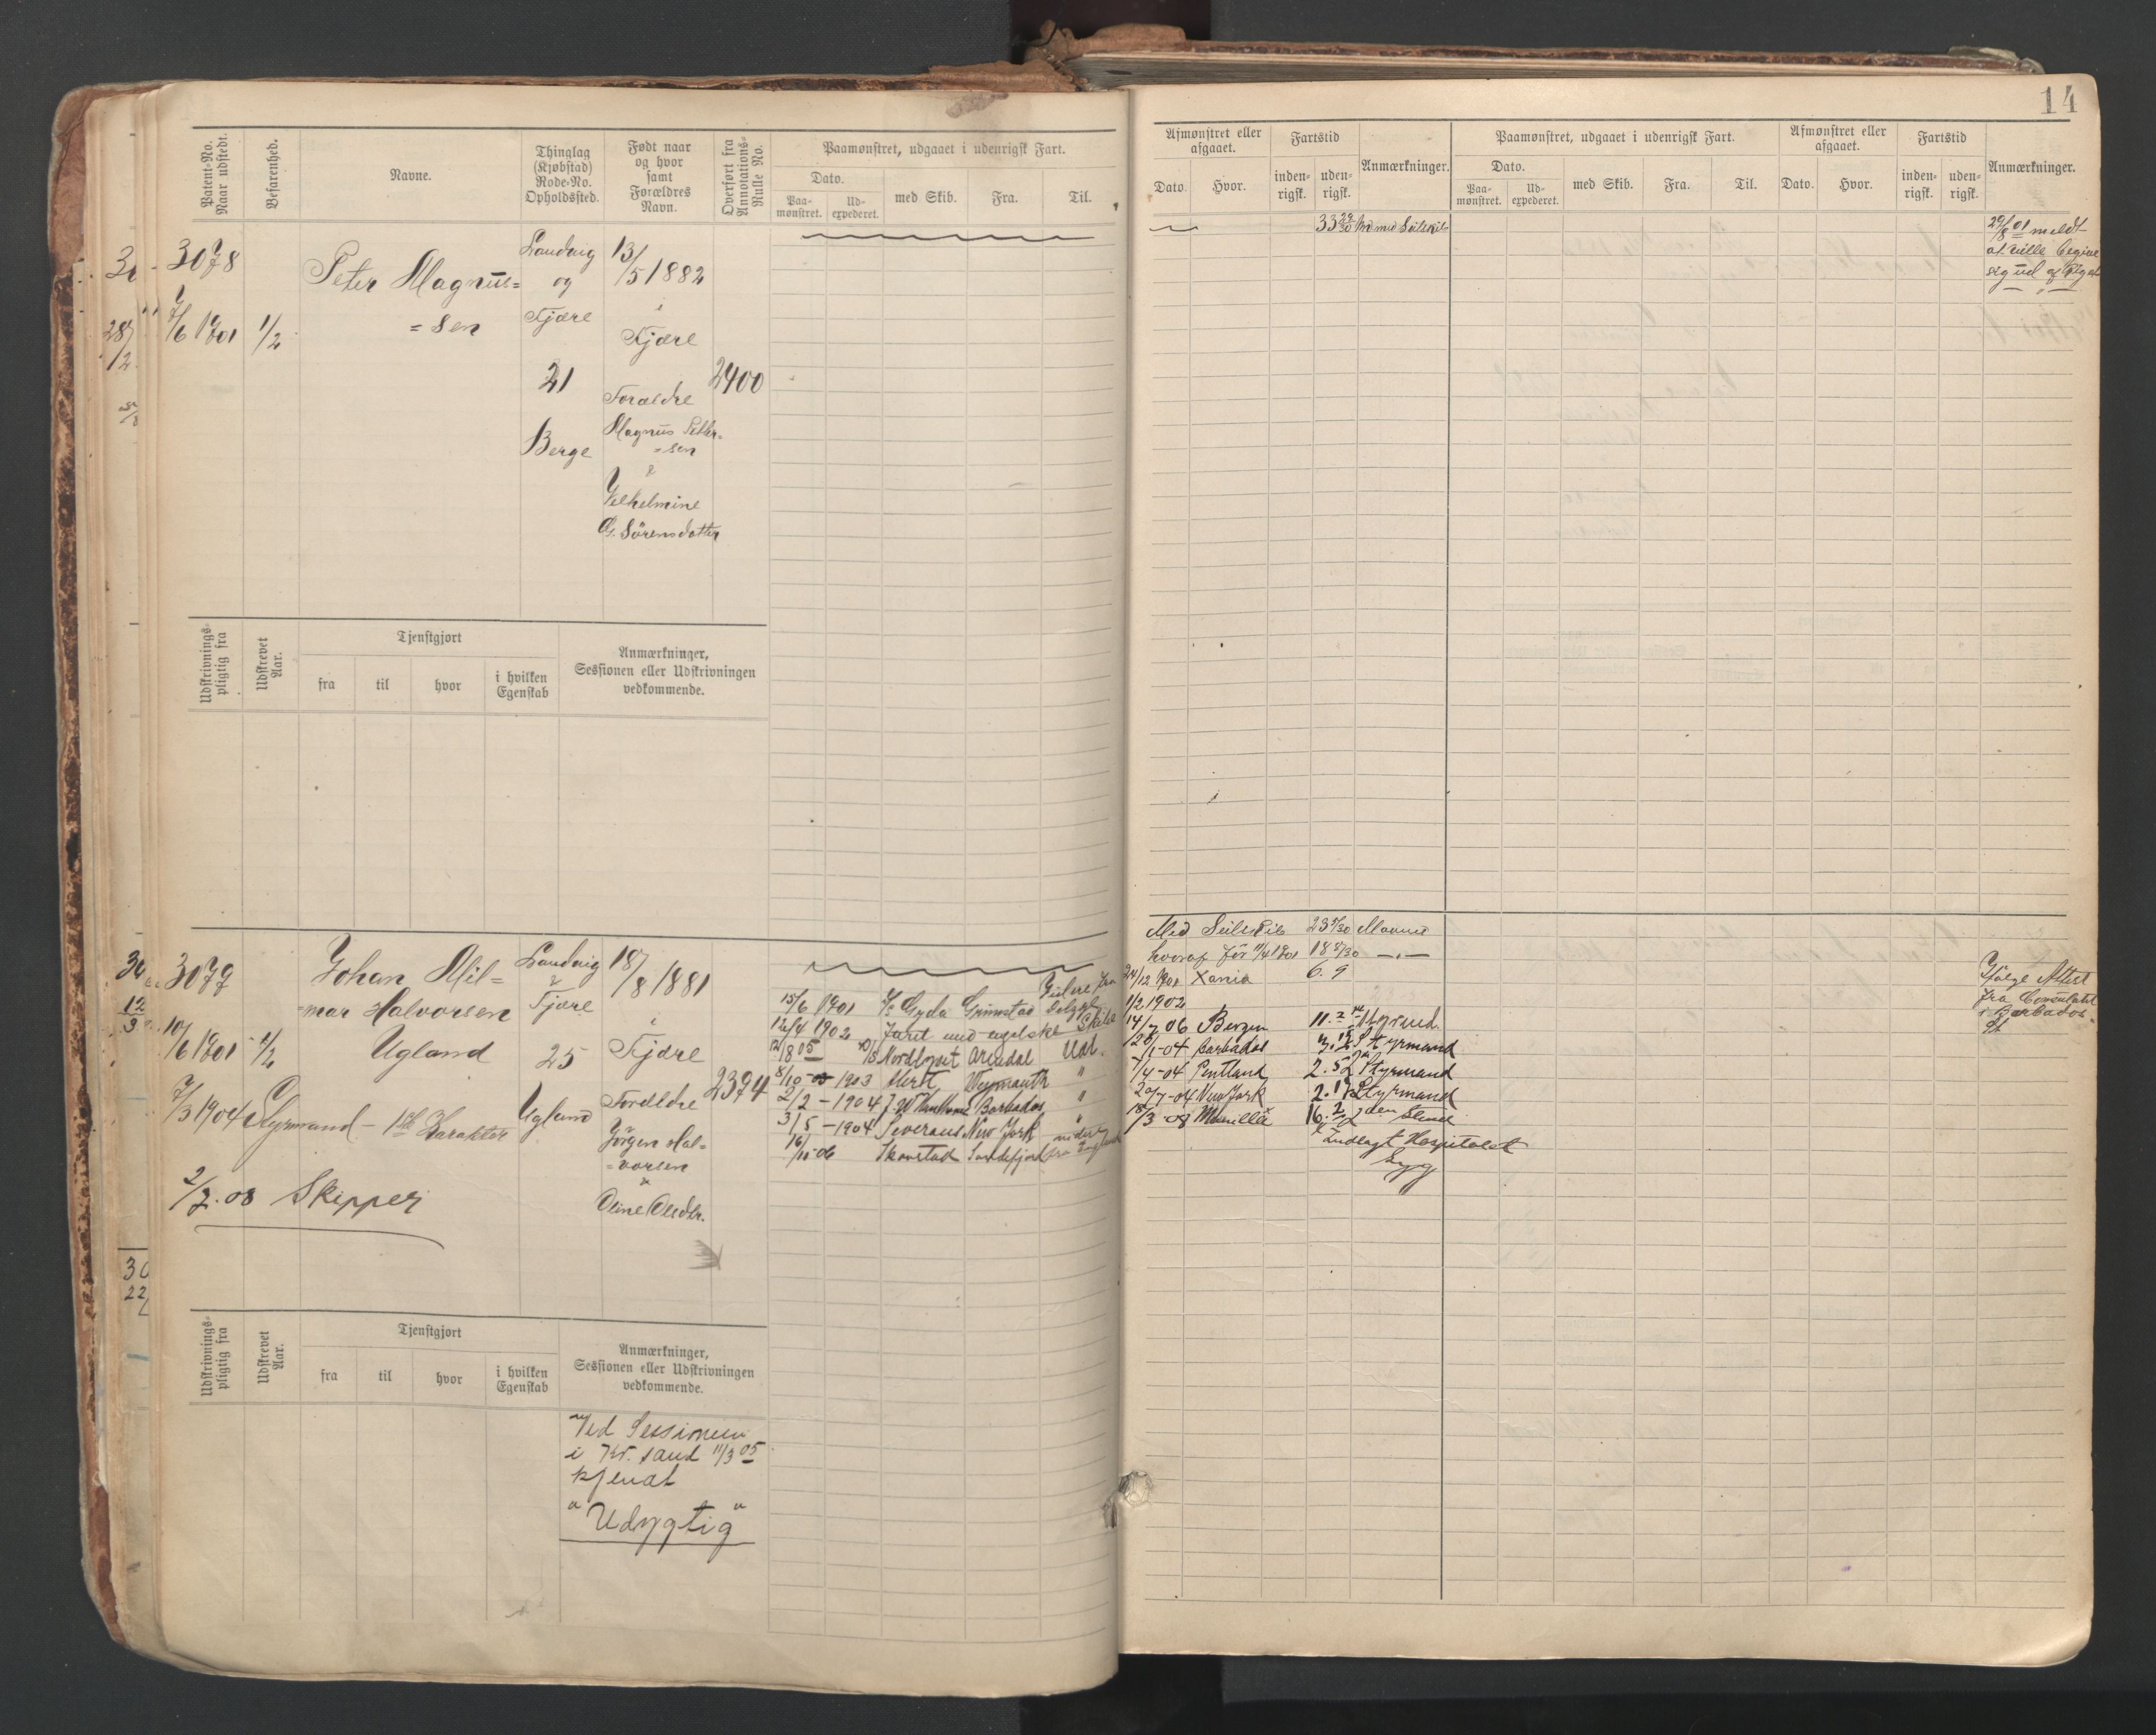 14
Patent-No.
Naar udstedt.
Befarenhed.
Navne.
Thinglag
(Kjøbstad)
Rode-No.
Opholdssted.
Født naar
og hvor
samt
Forældres
Navn.
Overført fra
Annotations-
Rulle No.
Paamønstret, udgaaet i udenrigsk Fart.
Dato.
Paa-
mønstret.
Ud-
expederet.
med Skib.
Fra.
Til.
Afmønstret eller
afgaaet.
Dato.
Hvor.
Fartstid
inden-
rigsk.
uden-
rigsk.
Anmærkninger.
Paamønstret, udgaaet i udenrigsk Fart.
Dato.
Paa-
mønstret.
Ud-
expederet.
med Skib.
Fra.
Til.
Afmønstret eller
afgaaet.
Dato.
Hvor.
Fartstid
inden-
rigsk.
uden-
rigsk.
Anmærkninger.
3078
7/6 1901
1/2
Peter Magnus=
=sen
Landvig
og
Fjære
21
Berge
13/5 1882
i
Fjære
Forældre
Magnus Petter=
=sen
&
Vilhelmine
G. Sörensdatter
2400
33 29/30 Md med Seilskib
29/8 01 meldt
at ville begive
sig ud af Riget
Udskrivnings-
pligtig fra
Udskrevet
Aar.
Tjenstgjort
fra
til
hvor
i hvilken
Egenskab
Anmærkninger,
Sessionen eller Udskrivningen
vedkommende.
3079
10/6 1901
1/2
Johan Hil=
=mar Halvorsen
Ugland
7/3 1904 Styrmand - 1ste Karakter
2/7.08 Skipper
Landvig
&
Fjære
25
Ugland
18/8 1881
i
Fjære
Forældre
Jörgen Hal=
=vorsen
&
Oline Olsdtr.
2394
15/6 1901 Gyda Grimstad
12/4 1902 Faret med engelske Skibe
12/8 05 Nordlyset Arendal Udl.
8/10 - 1903 Weymouth "
2/2 - 1904 Barbados "
3/5 - 1904 New York "
16/11-06 Skonstad Sandefjord
Med Seilskib 23 5/30 Maaned
hvoraf för 11/4 1901 18 8/30
24/12 1901 Xania 6.9
1/2 1902
14/7 06 Bergen
Barbados Styrmand
7/4-04 Pentland 2.5 Styrmand
20/7-04 New York Styrmand
18/3-08 Manilla
Indlagt Hospitalet
Syg
Ifölge Attest
fra Consulatet
i Barbados
Udskrivnings-
pligtig fra
Udskrevet
Aar.
Tjenstgjort
fra
til
hvor
i hvilken
Egenskab
Anmærkninger,
Sessionen eller Udskrivningen
vedkommende.
Ved Sessionen
i Kr.sand 11/3 05
kjendt
"Udygtig"